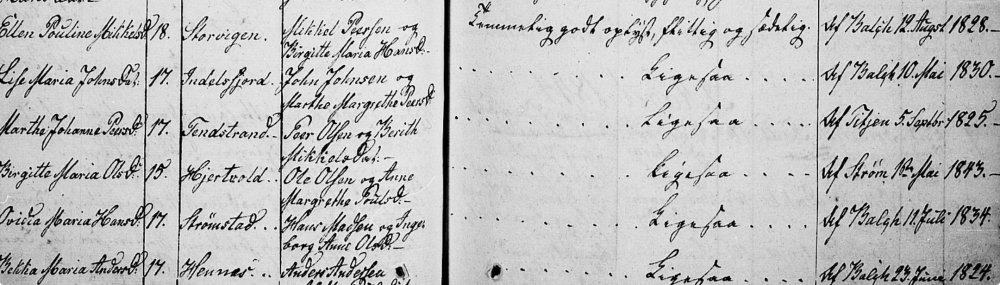 Ellen Pouline Mikkelsd. 18. Storvigen. Mikkel Peersen og Temmelig godt oplyst, flittig og sædelig. Af Balgh 12. Augst 1828.-
Birgitte Maria Hansd.
Lise Maria Johnsdat. 17. Indelsfjord. John Johnsen og Ligesaa Af Balgh 10. Mai 1830.-
Marthe Margrethe Peersd.
Marthe Johanne Peersd. 17. Tendstrand. Peer Olsen og Berith Ligesaa Af 5. Septbr. 1825.-
Mikkelsdat.-
Birgitte Maria Olsd. 15. Hjertvold. Ole Olsen og Anne Ligesaa Af Strøm Mai 1843.-
Margrethe Poulsd.-
Ovidia Maria Hansd. 17. Strømstad. Hans Madsen og Inge- Ligesaa Af Balgh 11. Juli 1834.
borg Anne Olsd.-
Maria Andersd. 17. Hennæs. Anders Andersen Ligesaa Af Balgh 23. Juni 1824.